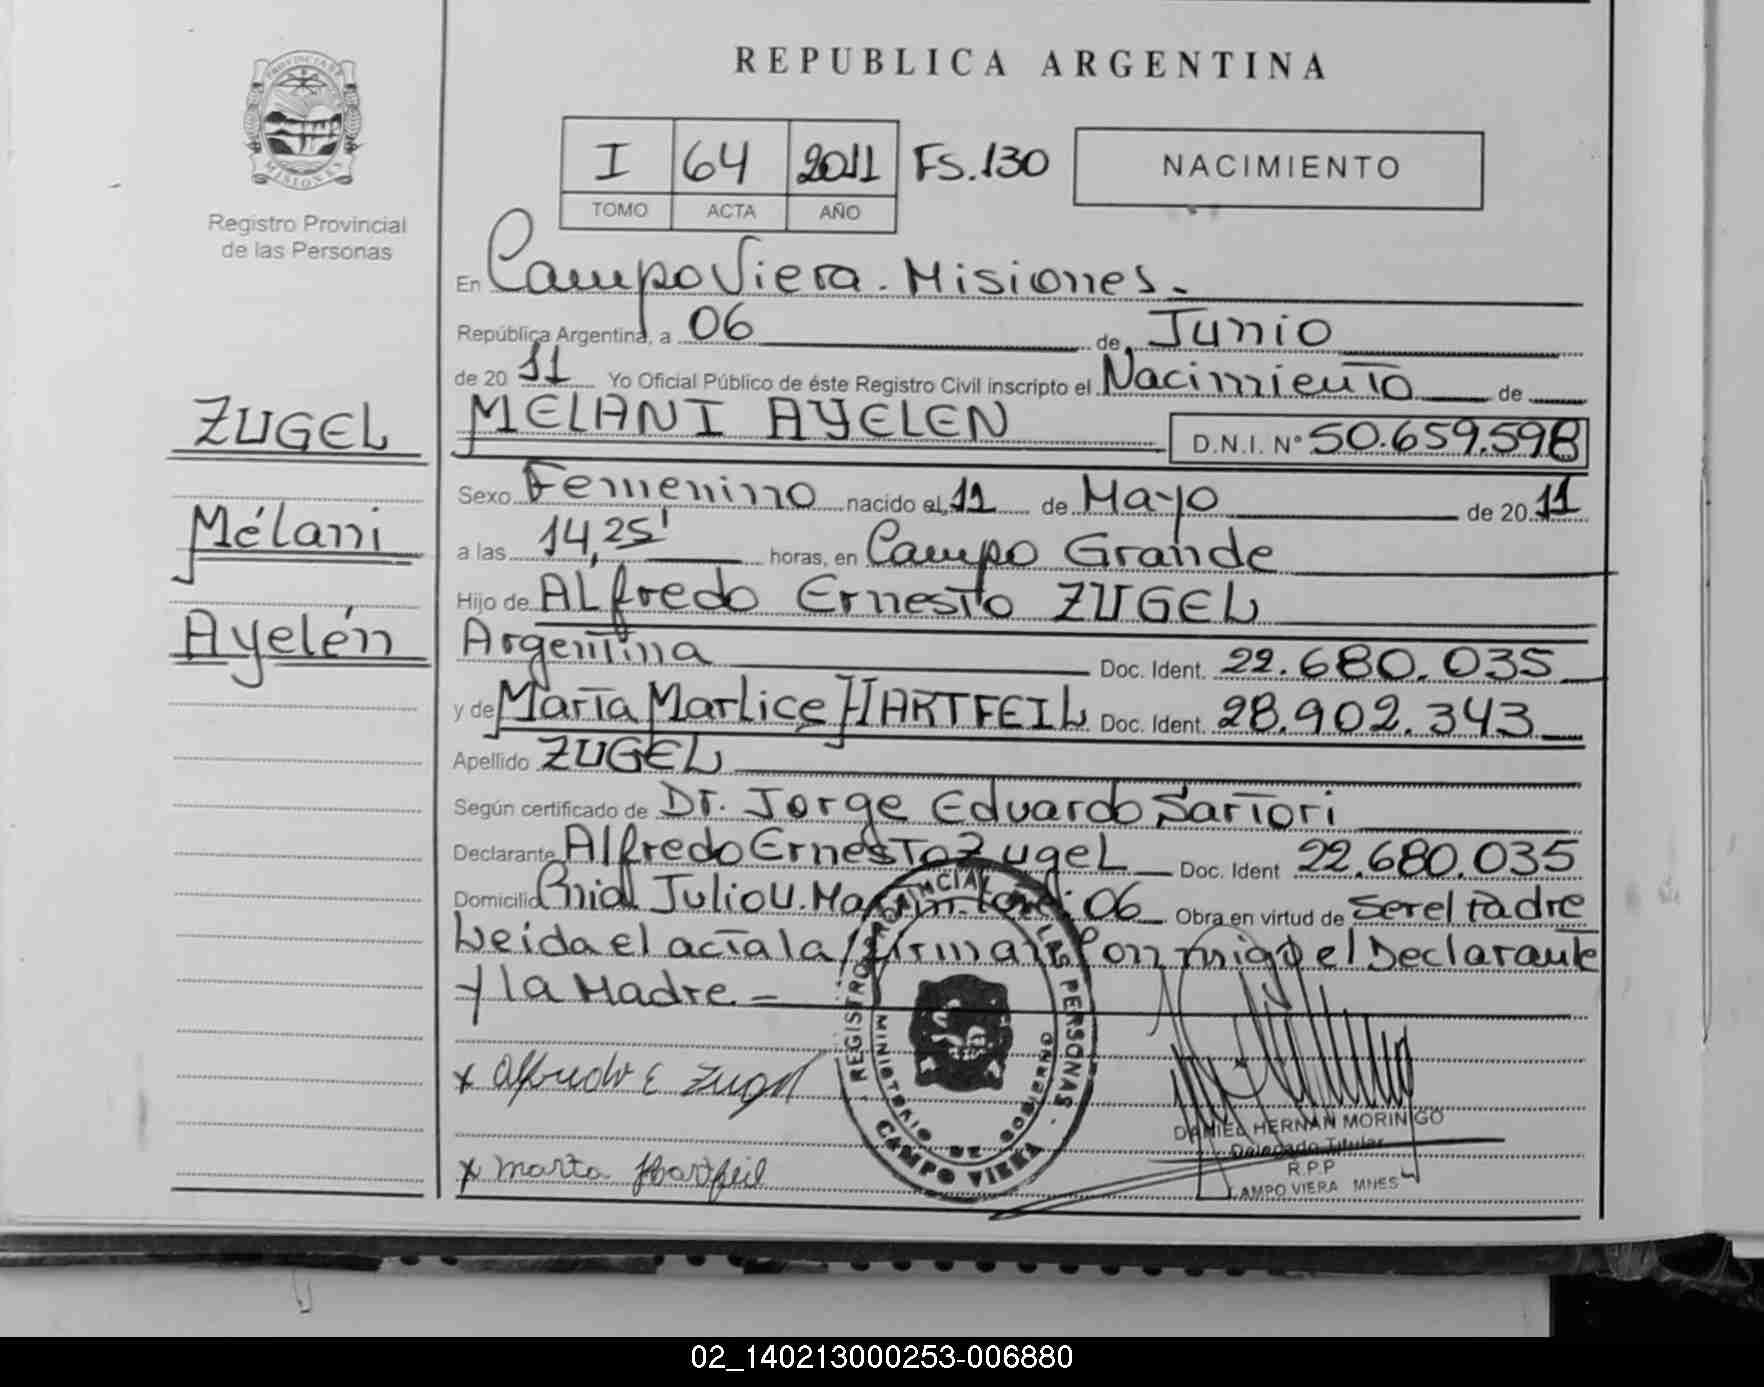 REPUBLICA ARGENTINA
PROVINCIA DE
MISIONES
Registro Provincial
de las Personas
I 64 2011 FS.130
TOMO ACTA AÑO
NACIMIENTO
En Campo Viera. Misiones.
República Argentina, a 06 de Junio
de 20 11 Yo Oficial Público de éste Registro Civil inscripto el Nacimiento de
MELANI AYELEN D.N.I. N° 50.659.598
ZUGEL
Mélani
Ayelén
Sexo Femenino nacido el 11 de Mayo de 20 11
a las 14,25' horas, en Campo Grande
Hijo de Alfredo Ernesto ZUGEL
Argentina Doc. Ident. 22.680.035
y de María Marlice HARTFEIL Doc. Ident. 28.902.343
Apellido ZUGEL
Según certificado de Dr. Jorge Eduardo Sartori
Declarante Alfredo Ernesto Zugel Doc. Ident 22.680.035
Domicilio Julio U. 06 Obra en virtud de Ser el Padre
Leida el acta la firman con migo el Declarante
y la Madre
x Alfredo E Zugel
x marta Hartfeil
REGISTRO PROVINCIAL DE LAS PERSONAS
MINISTERIO DE GOBIERNO
CAMPO VIERA
DANIEL HERNAN MORINIGO
Delegado Titular
R.P.P
CAMPO VIERA MNES
02_140213000253-006880